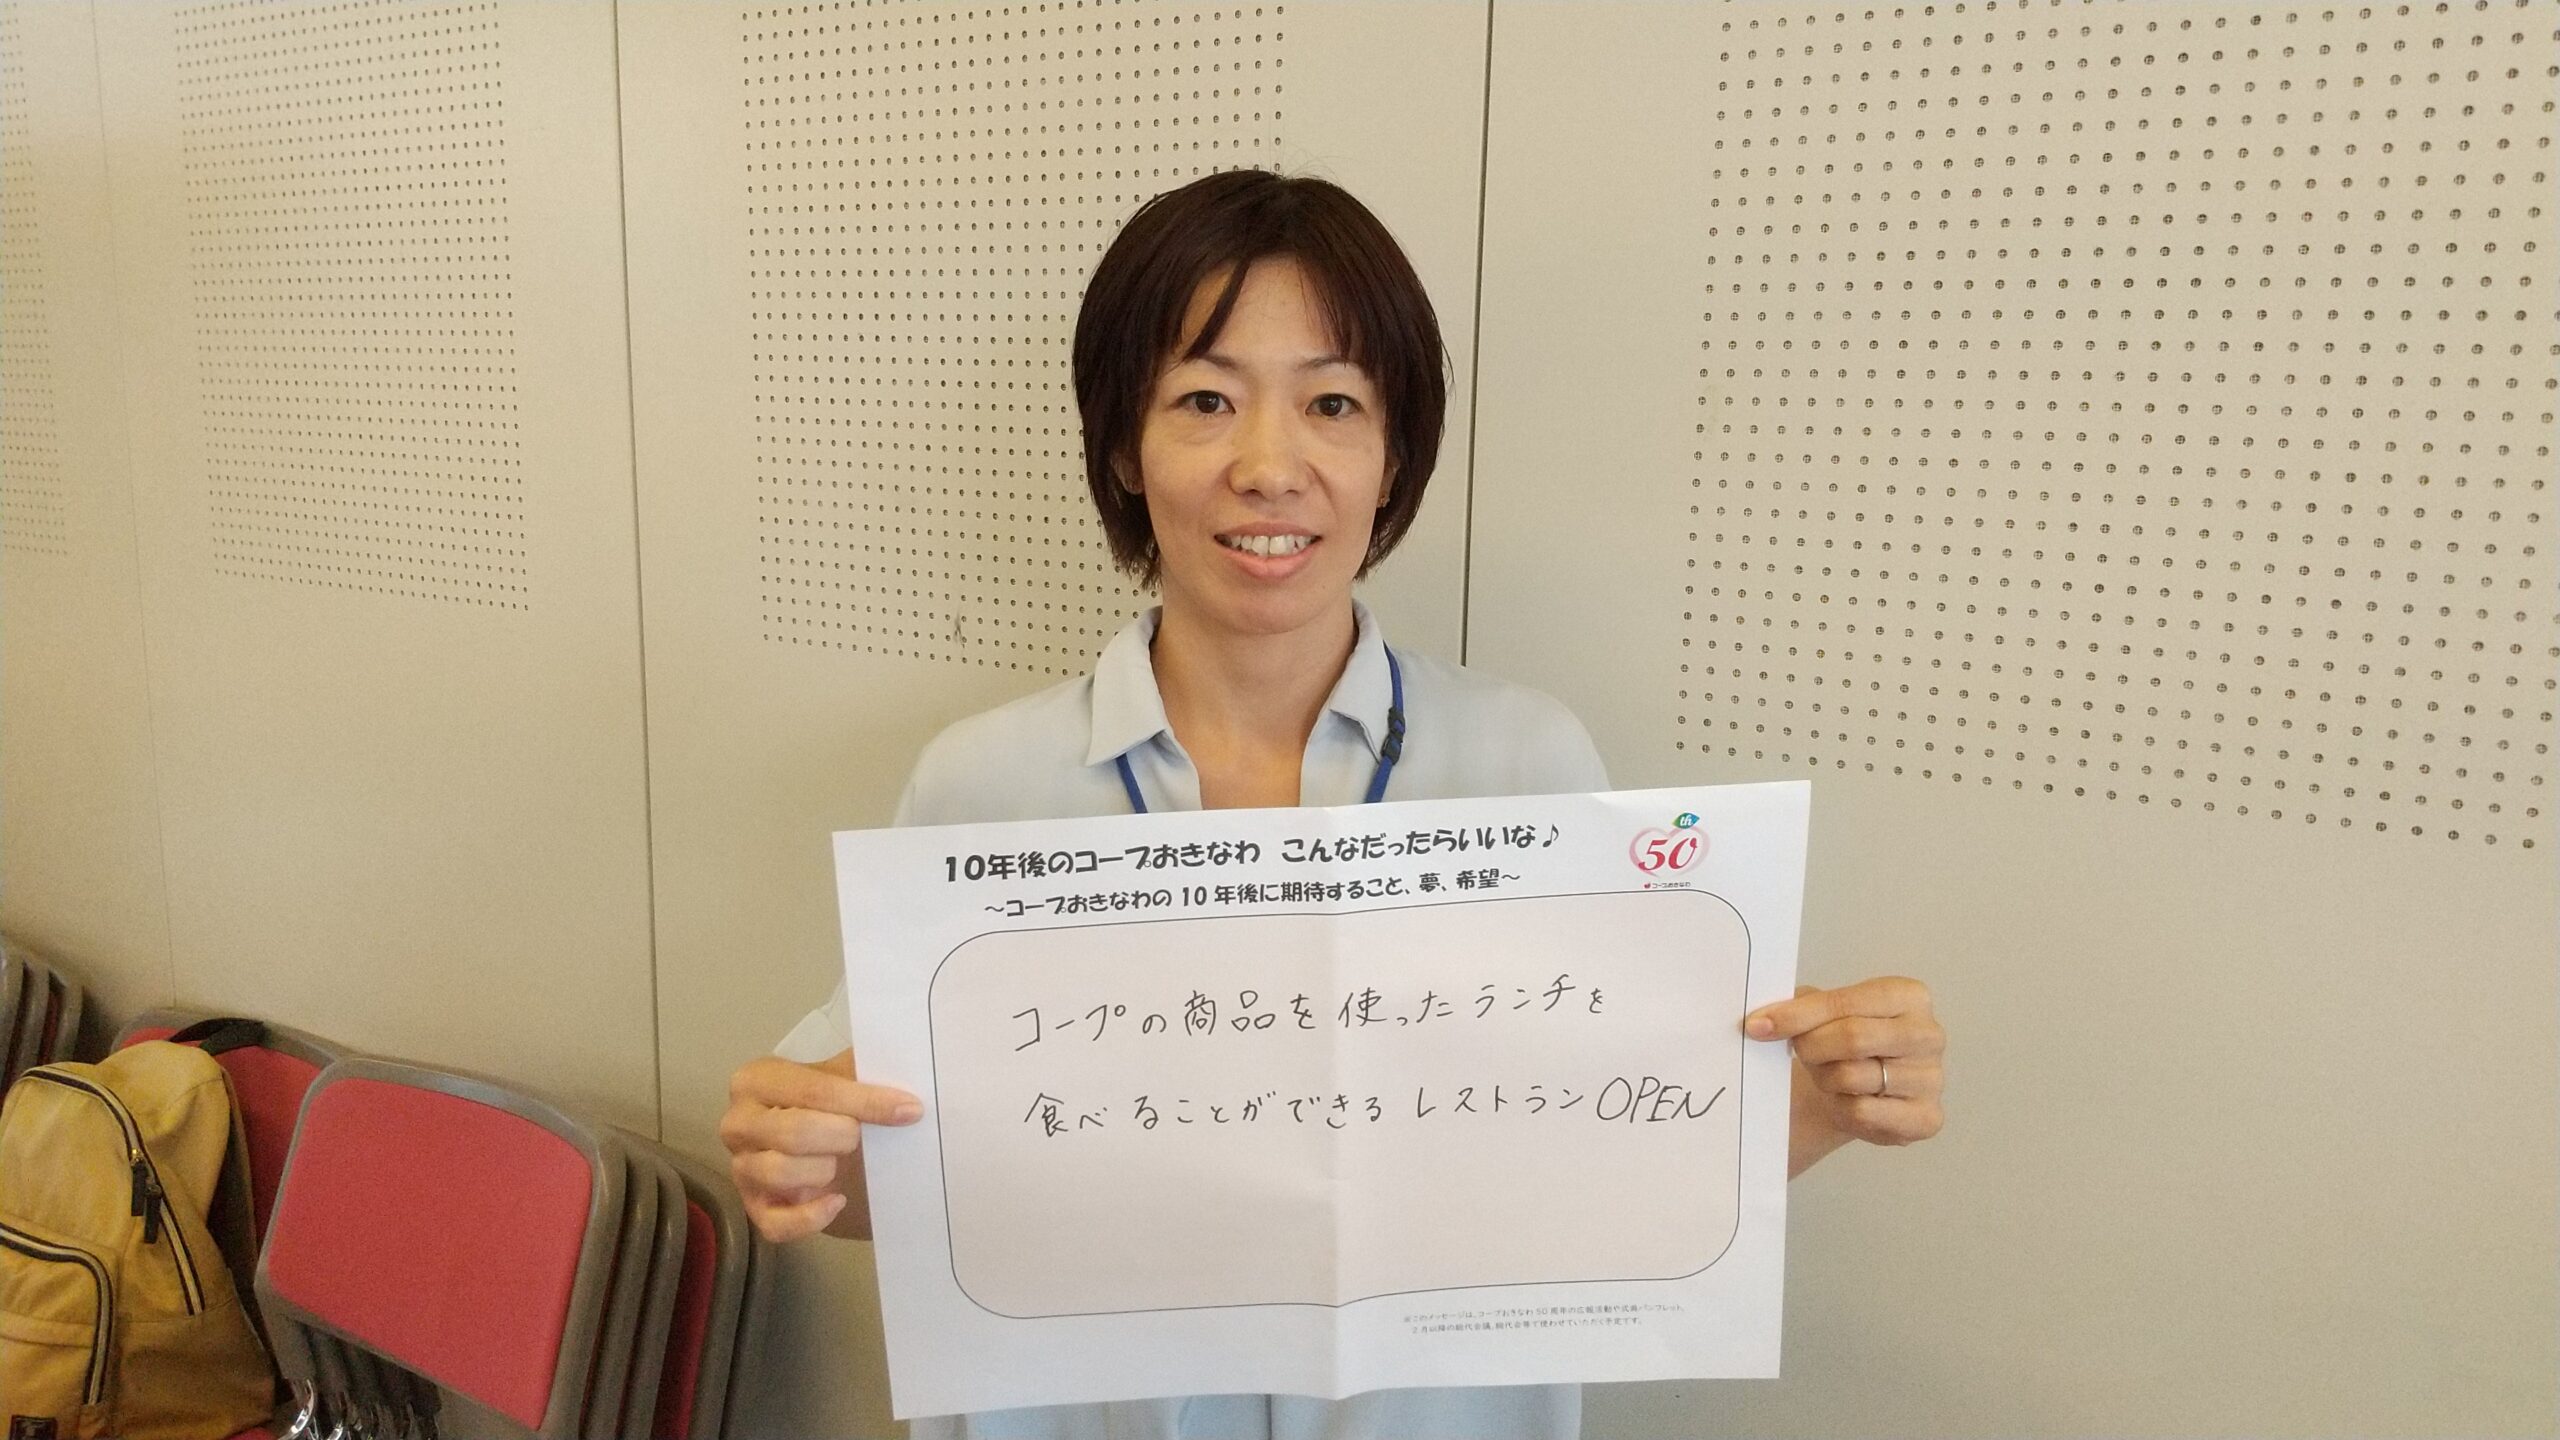 10年後のコープおきなわ こんなだったらいいな♪
～コープおきなわの10年後に期待すること、夢、希望～
50th
コープおきなわ
コープの商品を使ったランチを
食べることができるレストランOPEN
※このメッセージは、コープおきなわ50周年の広報活動や式典パンフレット、
2月以降の総代会議、総代会等で使わせていただく予定です。